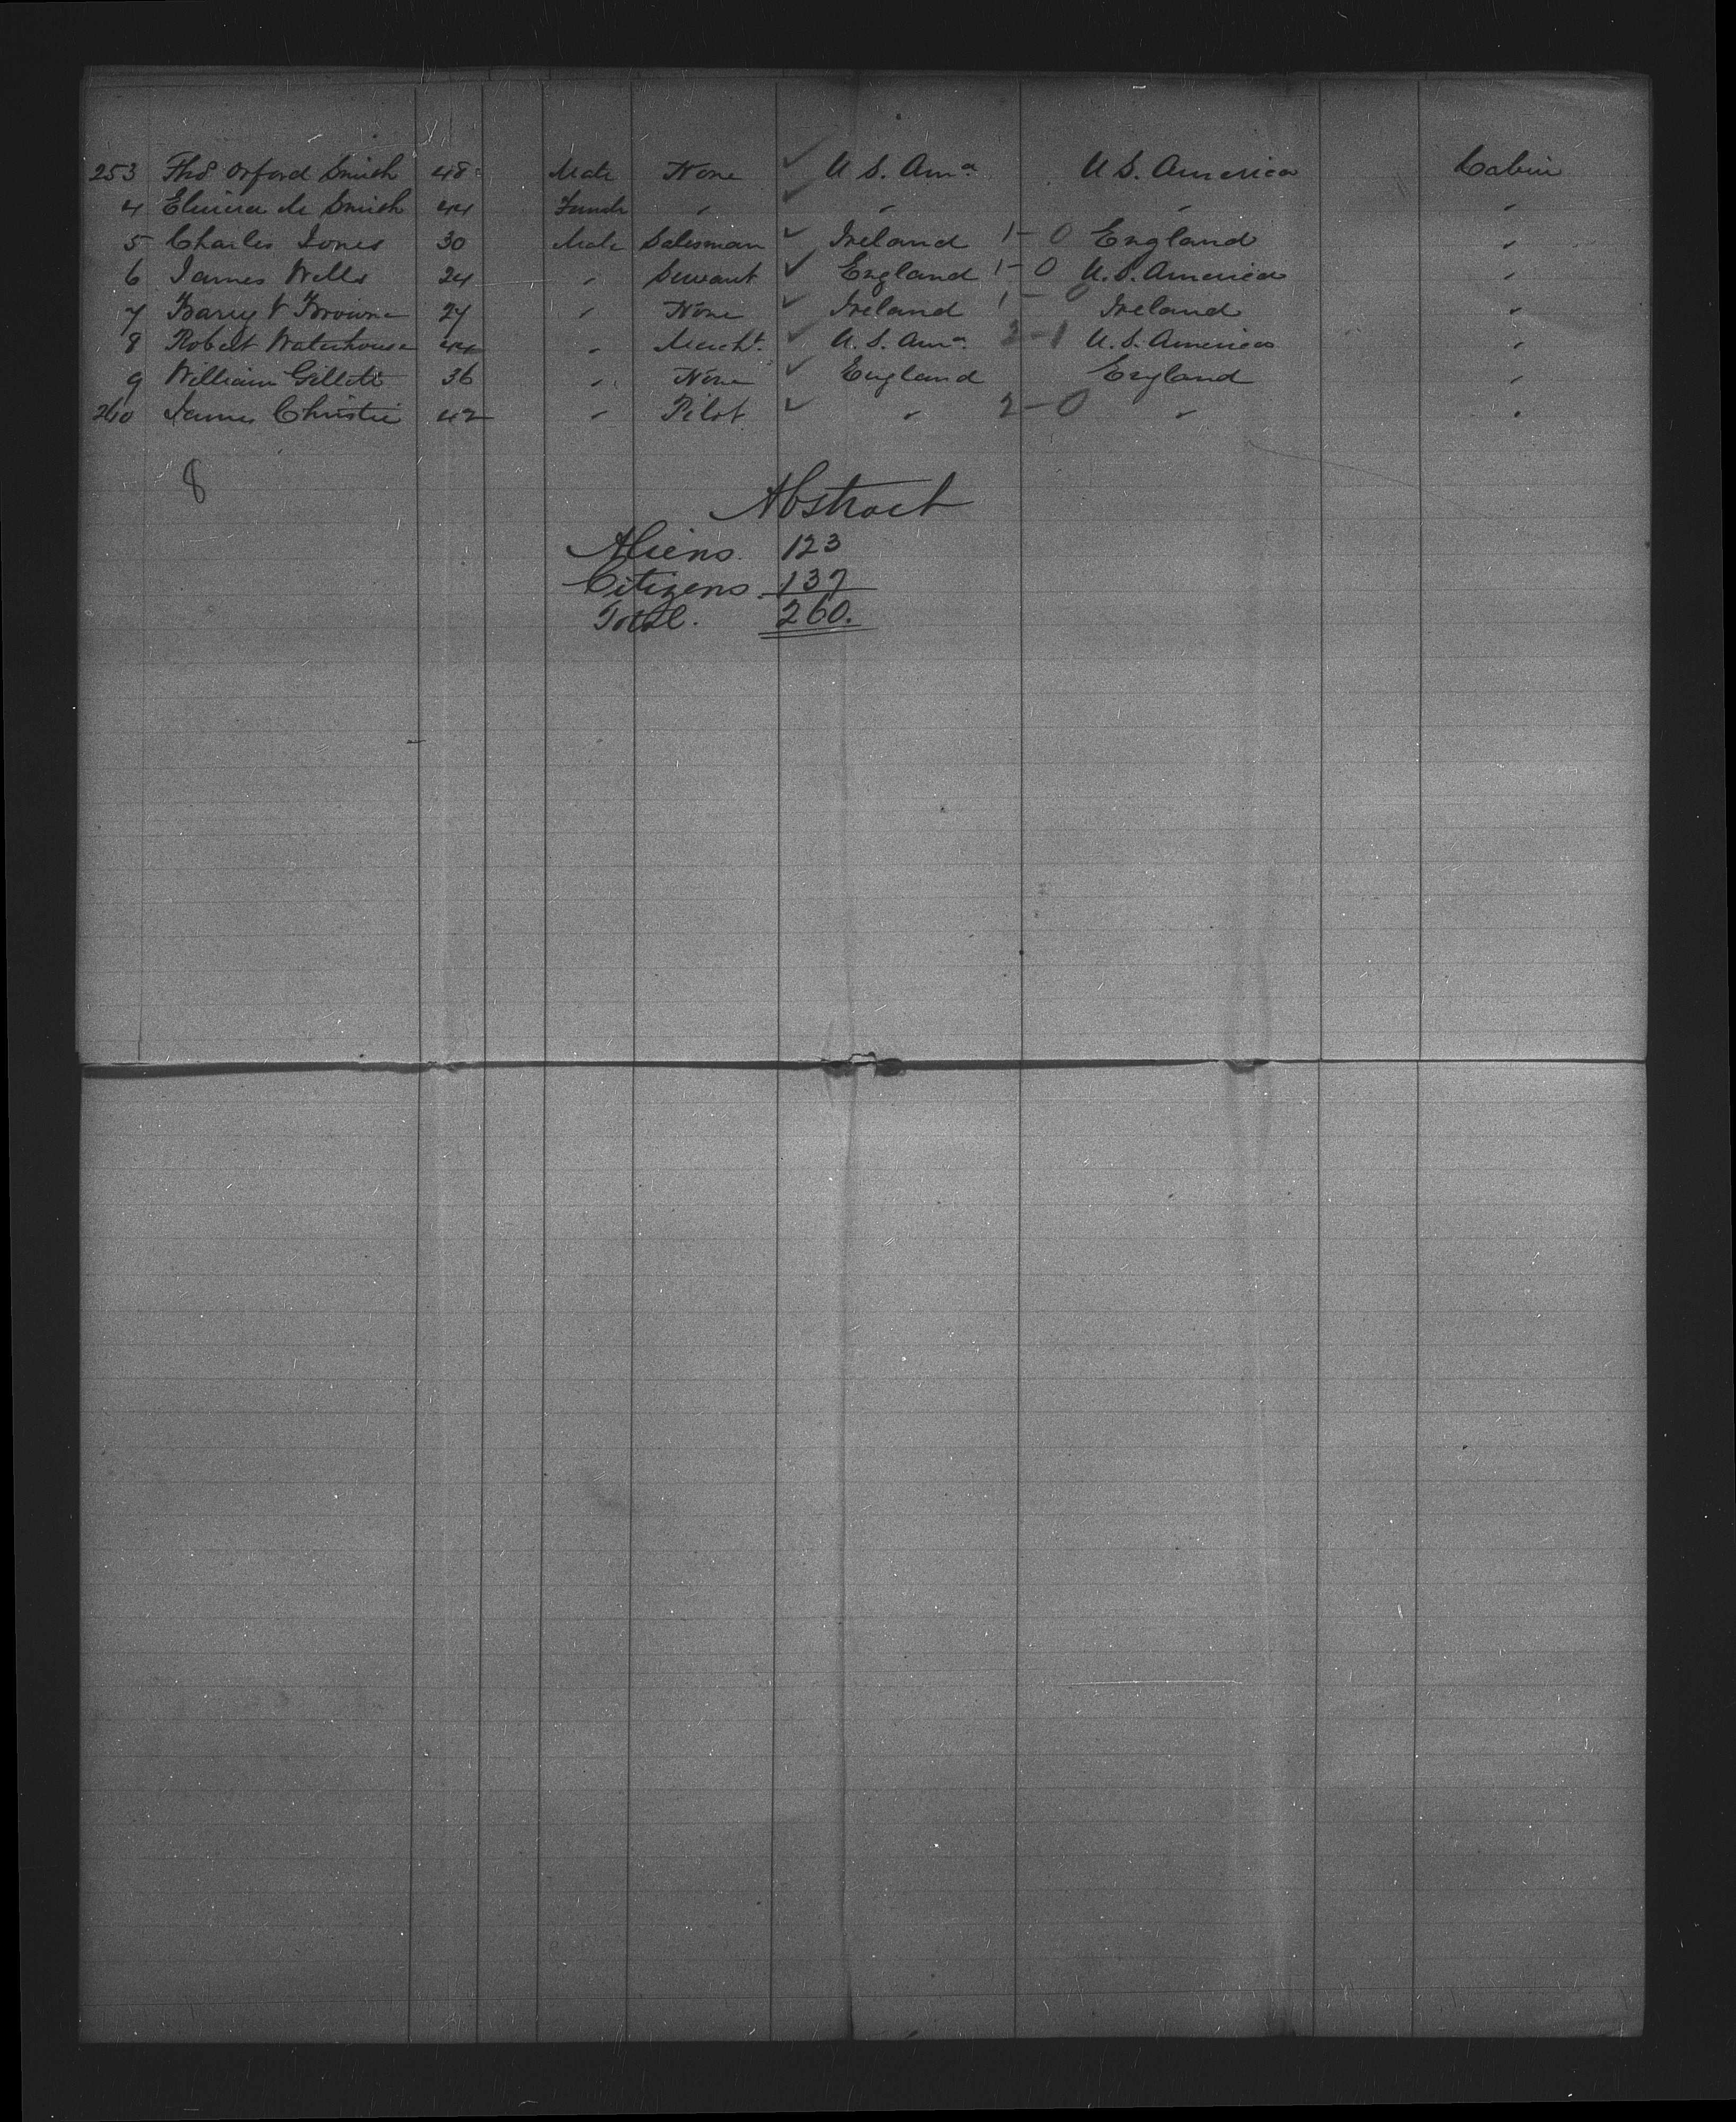 253 Thos Orford Smith 48 Male None ✓ U S. Ama U S. America Cabin
4 Elmira de Smith 44 Female " ✓ " " "
5 Charles Jones 30 Male Salesman ✓ Ireland 1-0 England "
6 James Wells 24 " Servant ✓ England 1-0 U.S. America "
7 Barry V Browne 27 " None ✓ Ireland 1-0 Ireland "
8 Robert Waterhouse 44 " Mercht. ✓ U.S. Ama 2-1 U.S. America "
9 William Gillett 36 " None ✓ England England "
260 James Christie 42 " Pilot ✓ " 2-0 " "
8
Abstract
Aliens. 123
Citizens. 137
Total. 260.